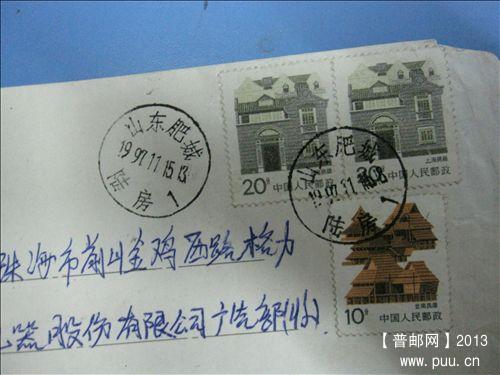 山东肥城
1997.11.15.13
陆房
1
20分
中国人民邮政
上海民居
20分
中国人民邮政
山东肥城
1997.11
陆房
1
云南民居
10分
中国人民邮政
珠海市前山金鸡西路格力
器股份有限公司广告部收
【普邮网】2013
www.puu.cn